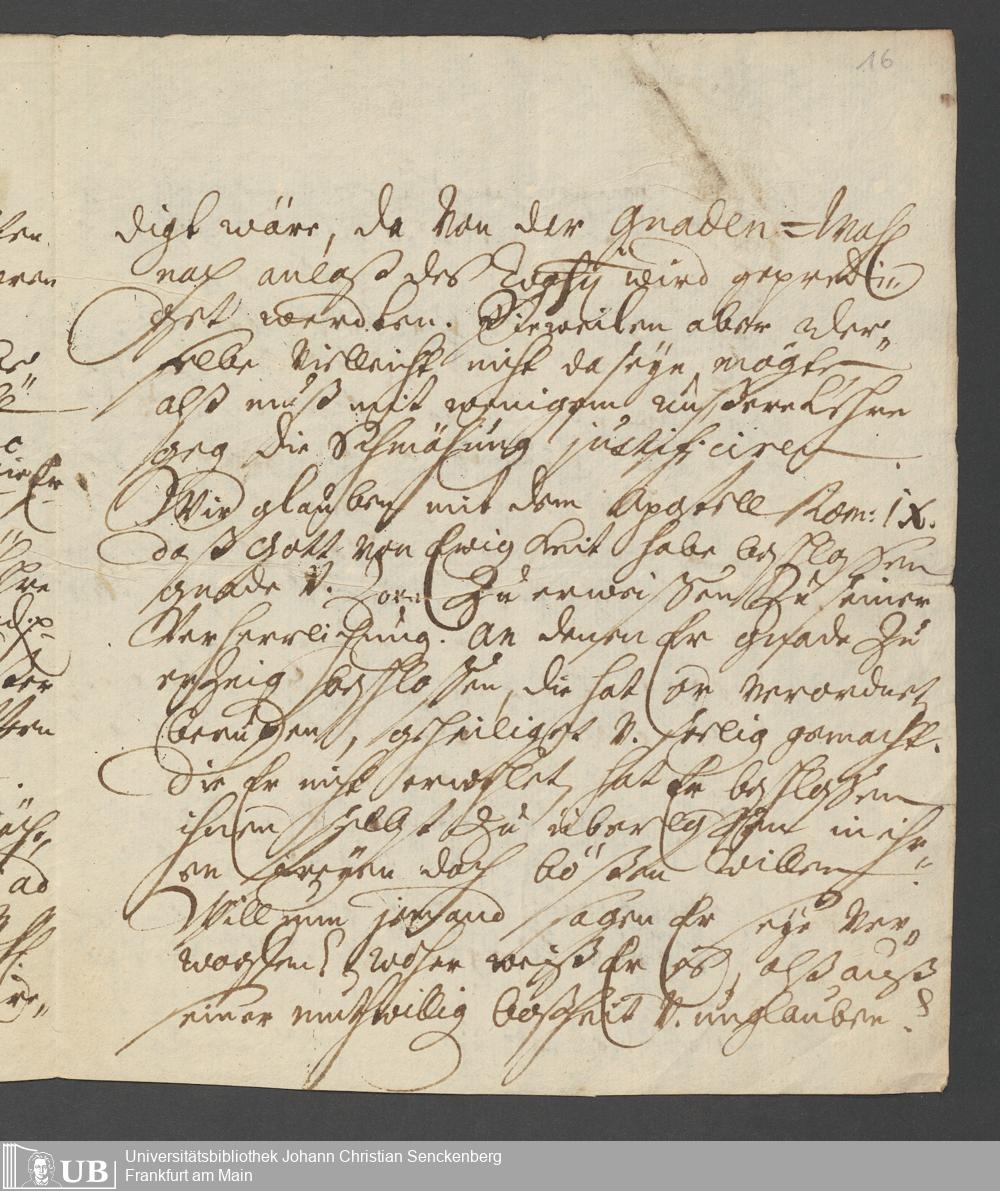 16
digt wäre, da von der Gnaden=Wahl
nach anlaß des wird gepredi„
get werden. Dieweilen aber der„
selbe vielleicht nicht da seyn mögte
alß muß mit wenigem unßere Lehre
geg die Schmähung justificiren.
Wir glauben mit dem Apostell Rom: IX.
daß Gott von Ewigkeit habe beschlossen
gnade v. Zorn zu erweissen zu seiner
Verherrlichung. An denen Er gnade zu
erzeig beschlossen, die hat er verordnet
beruffen, geheiliget v. seelig gemacht.
Die Er nicht erwehlet, hat Er beschlossen
ihnen selbst zu überlassen in ihr„
en freyen doch bößen willen.
Will nun jemand sagen Er seye ver„
worffen? woher weiß Er es, alß auß
seiner muthwillig boßheit v. unglauben?
Universitätsbibliothek Johann Christian Senckenberg
UB Frankfurt am Main